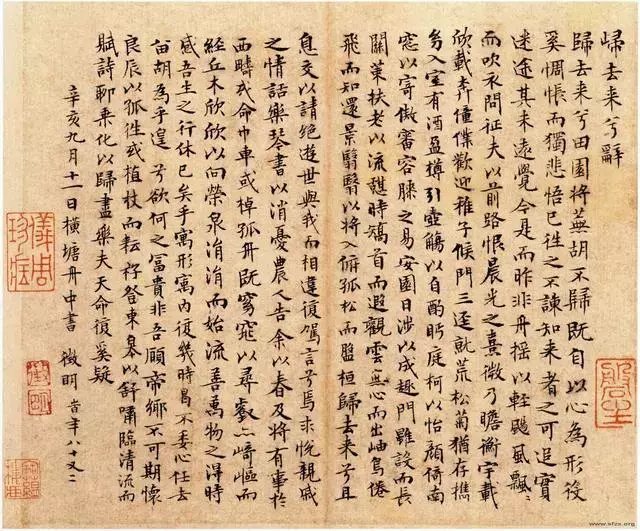 歸去来兮辭
歸去来兮田園將蕪胡不歸既自以心為形役
奚惆悵而獨悲悟已往之不諫知来者之可追實
迷途其未遠覺今是而昨非舟摇以輕颺風飄〻
而吹衣問征夫以前路恨晨光之熹微乃瞻衡宇載
欣載奔僮僕歡迎稚子候門三逕就荒松菊猶存攜
幼入室有酒盈樽引壺觴以自酌眄庭柯以怡顏倚南
窓以寄傲審容膝之易安園日涉以成趣門雖設而長
關策扶老以流憩時矯首而遐觀雲無心而出岫鳥倦
飛而知還景翳翳以將入撫孤松而盤桓歸去来兮且
息交以請絶遊世與我而相違復駕言兮焉求悅親戚
之情話樂琴書以消憂農人告余以春及將有事於
西疇或命巾車或棹孤舟既窈窕以尋壑亦崎嶇而
經丘木欣欣以向榮泉涓涓而始流善萬物之得時
感吾生之行休已矣乎寓形寓内復幾時曷不委心任去
留胡為乎遑兮欲何之富貴非吾願帝鄉不可期懷
良辰以孤往或植杖而耘耔登東皋以舒嘯臨清流而
賦詩聊乗化以歸盡樂夫天命復奚疑
辛亥九月十一日横塘舟中書 徵明 時年八十又二
徵明